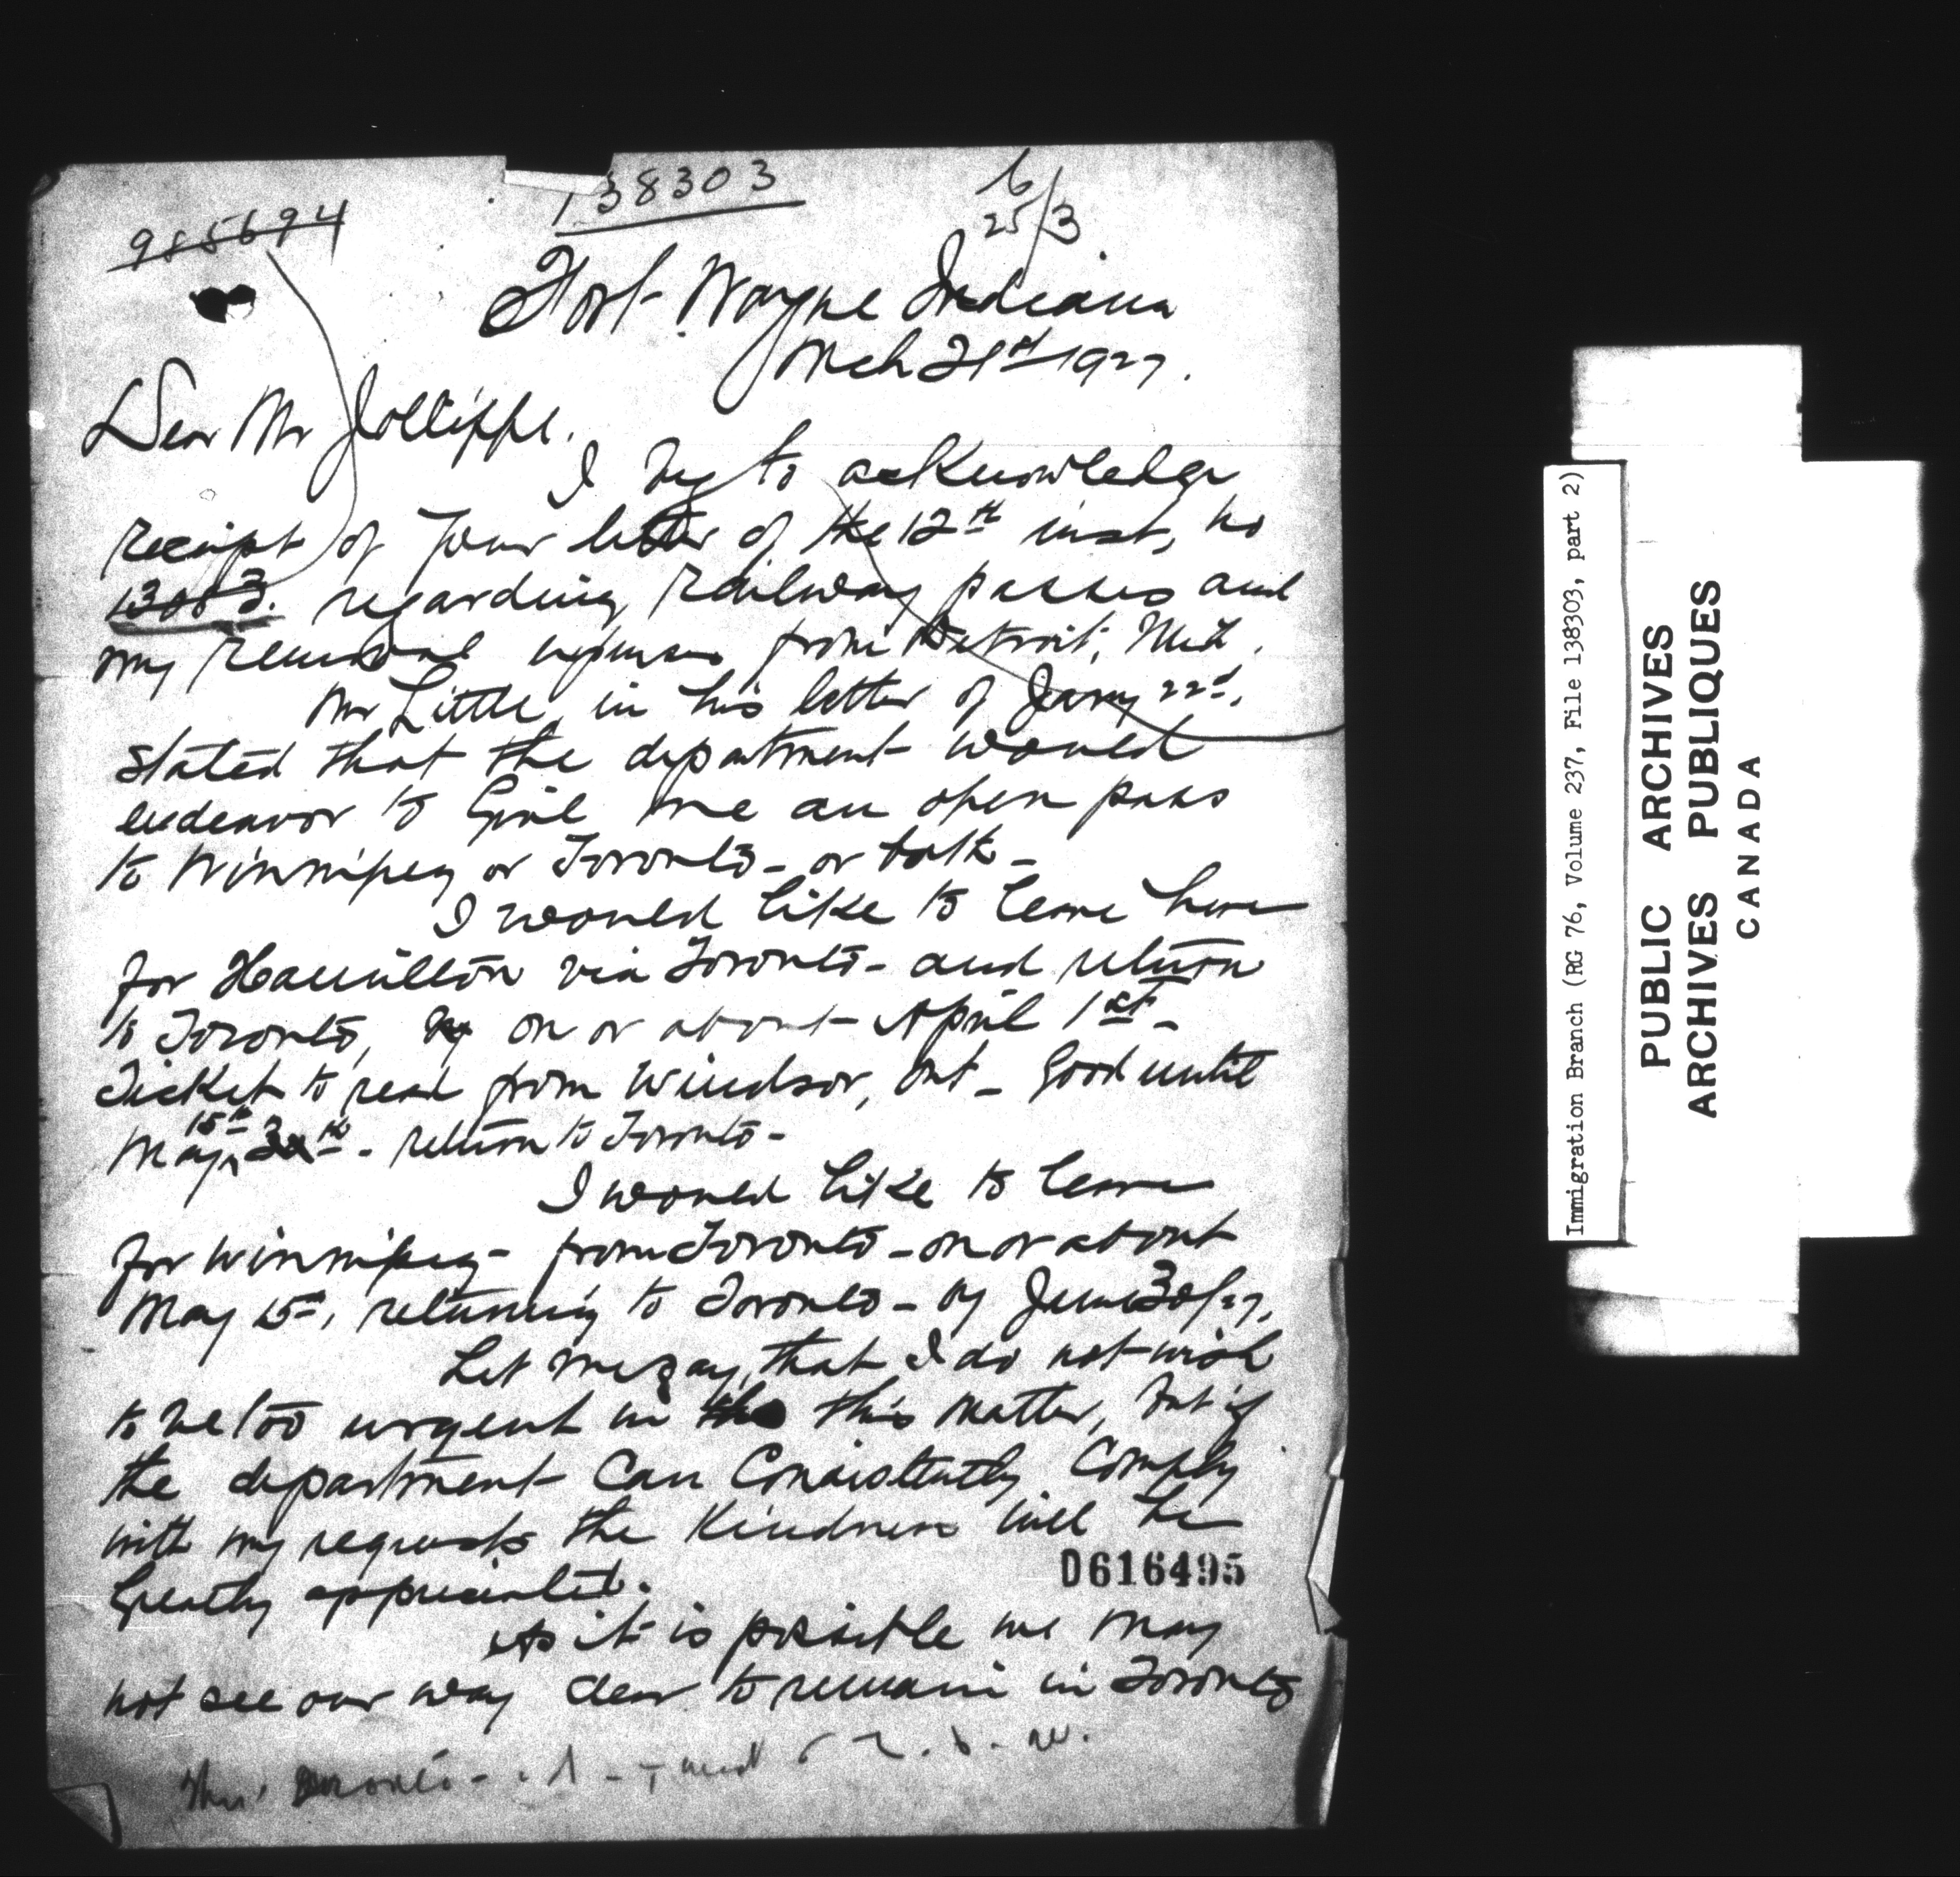 985694
138303
6
25/3
Fort Wayne Indiana
Mch 21st 1927.
Dear Mr Jolliffe.
I beg to acknowledge
receipt of your letter of the 12th inst, no
13083. regarding railway passes and
my removal expenses from Detroit, Mich.
Mr Little, in his letter of Jany 22d,
stated that the department would
endeavor to give me an open pass
to Winnipeg or Toronto - or both -
I would like to leave here
for Hamilton via Toronto - and return
to Toronto, by on or about April 1st -
Ticket to read from Windsor, Ont - Good until
May 15th 30th - return to Toronto -
I would like to leave
for Winnipeg - from Toronto - on or about
May 15th, returning to Toronto - by June 30/27,
Let me say, that I do not wish
to be too urgent in the this matter, but if
the department can consistently comply
with my requests the kindness will be
greatly appreciated.
D616495
As it is possible we may
not see our way clear to remain in Toronto
Immigration Branch (RG 76, Volume 237, File 138303, part 2)
PUBLIC ARCHIVES
ARCHIVES PUBLIQUES
CANADA